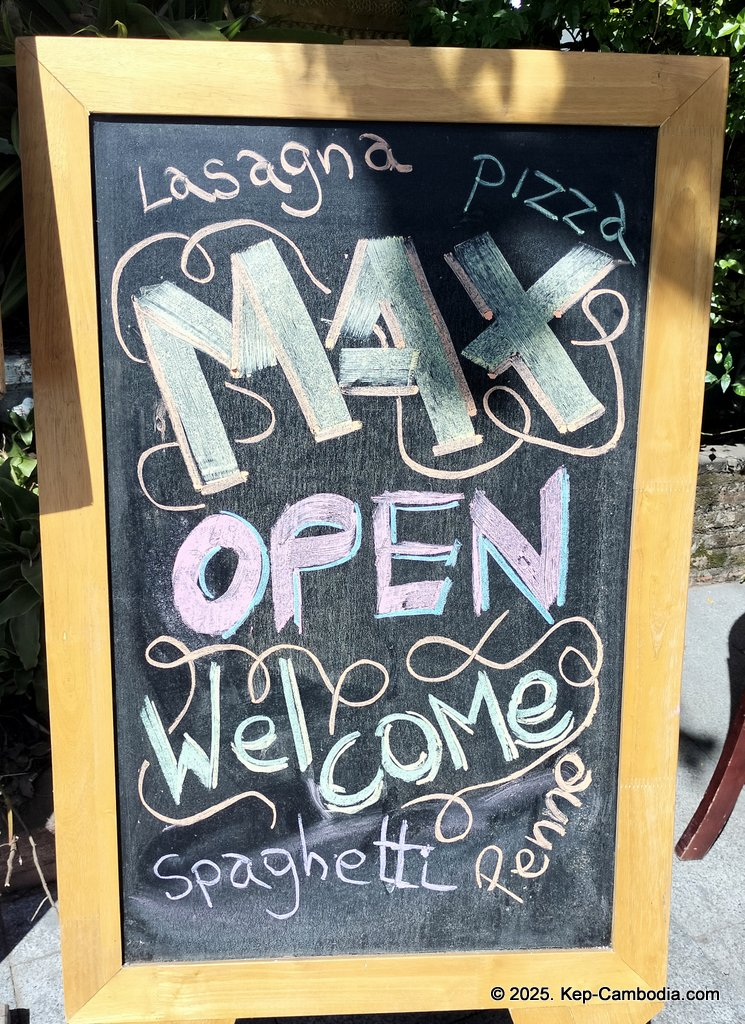 Lasagna
Pizza
MAX
OPEN
Welcome
Spaghetti
Penne
© 2025. Kep-Cambodia.com